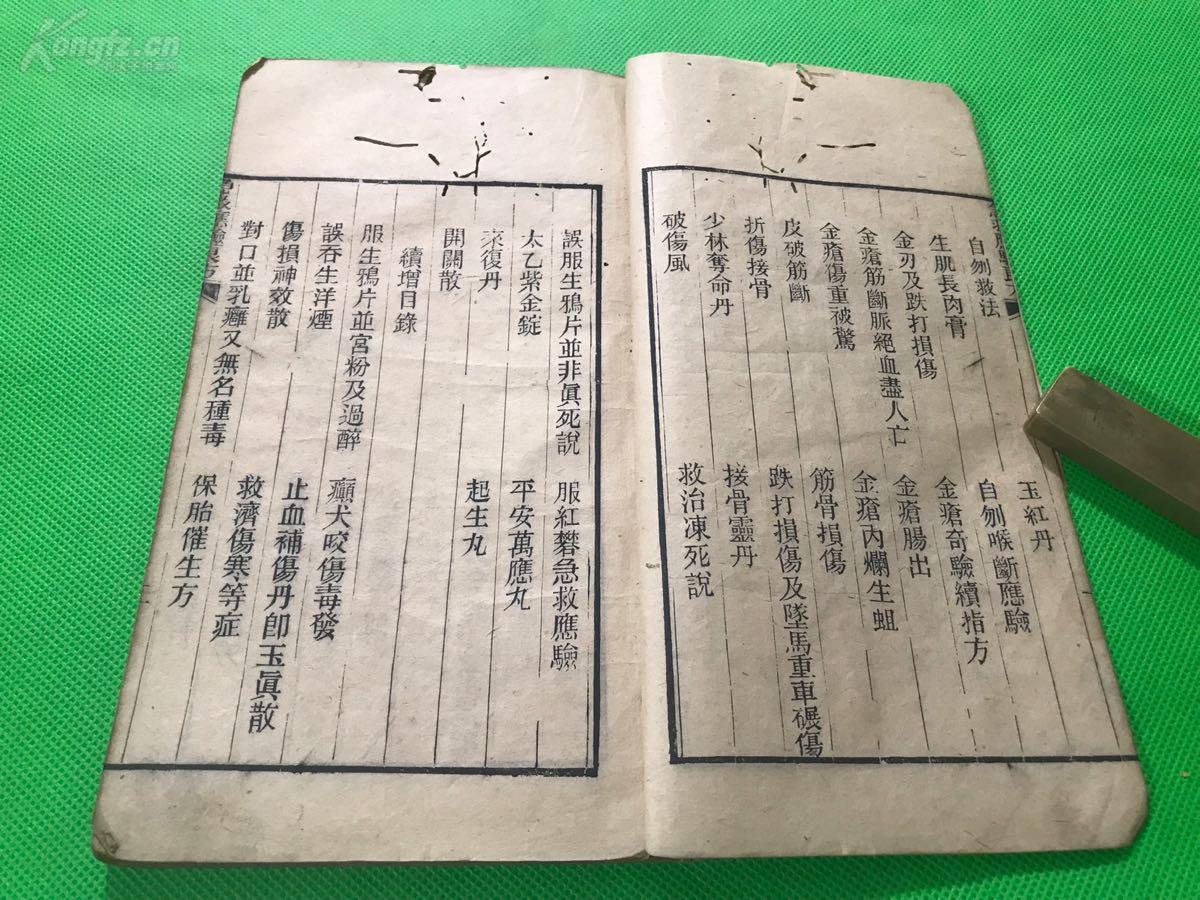 Kongfz.cn
自刎救法
玉紅丹
生肌長肉膏
自刎喉斷應驗
金刃及跌打損傷
金瘡奇驗續指方
金瘡筋斷脈絕血盡人亡
金瘡腸出
金瘡傷重被驚
金瘡內爛生蛆
皮破筋斷
筋骨損傷
折傷接骨
跌打損傷及墜馬重車碾傷
少林奪命丹
接骨靈丹
破傷風
救治凍死說
誤服生鴉片並非眞死說
服紅礬急救應驗
太乙紫金錠
平安萬應丸
來復丹
起生丸
開關散
續增目錄
服生鴉片並宮粉及過醉
誤吞生洋煙
癲犬咬傷毒發
傷損神效散
止血補傷丹卽玉眞散
對口並乳癰又無名種毒
救濟傷寒等症
保胎催生方